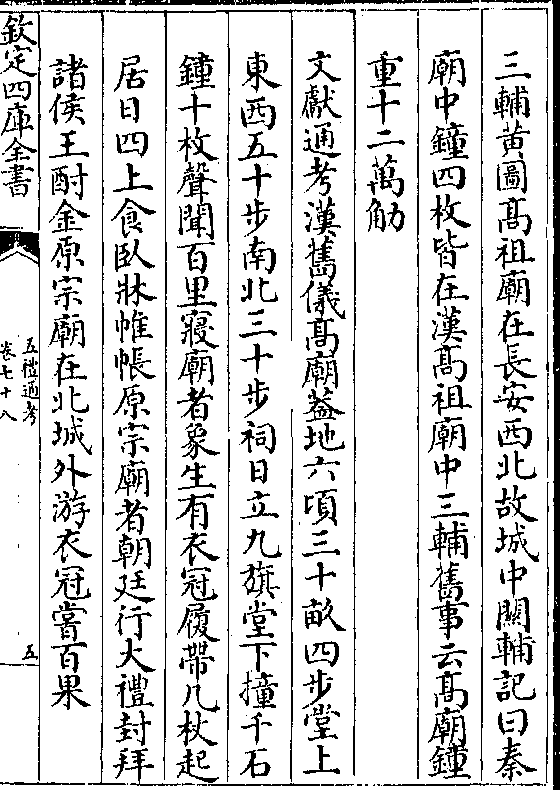 三輔黄圖髙祖廟在長安西北故城中闗輔記曰秦
廟中鐘四枚皆在漢髙祖廟中三輔舊事云髙廟鐘
重十二萬觔
文獻通考漢舊儀髙廟葢地六頃三十畝四步堂上
東西五十步南北三十步祠日立九旗堂下撞千石
鐘十枚聲聞百里寢廟者象生有衣冠履帶几杖起
居日四上食臥牀帷帳原宗廟者朝廷行大禮封拜
諸侯王酎金原宗廟在北城外游衣冠嘗百果
欽定四庫全書
五禮通考
卷七十八
五